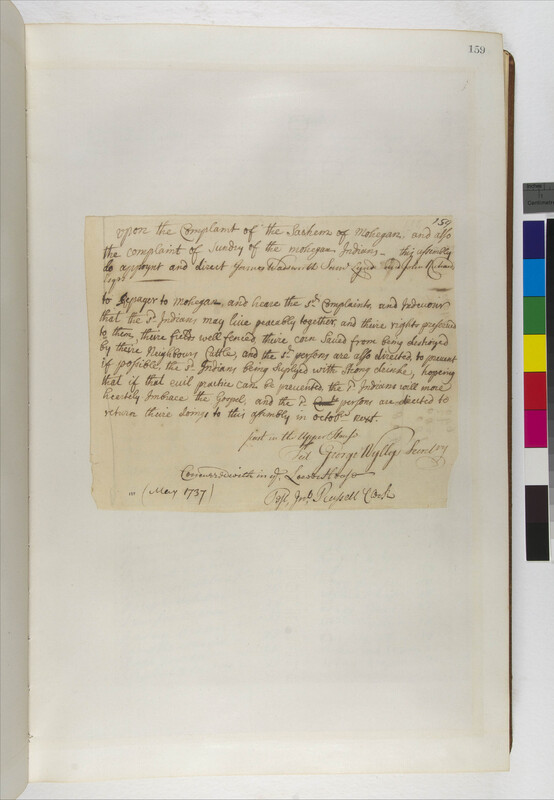 159
159
upon the Complaint of the Sachem of Mohegan, and also
the complaint of Sundry of the mohegan Indians - this assembly
do appoynt and direct James Wadsworth John
Esqrs
to Repayer to Mohegan, and heare the sd Complaints, and Indevour
that the sd Indians may live peacably together, and theire rights preserved
to them, theire fields well fenced, there corn saved from being destroyed
by theire Neighbours Cattle, and the sd persons are also directed to prevent
if possible, the sd Indians being suplyed with strong drinke, hopeing
that if that evil practice can be prevented the sd Indians will more
heartely Imbrace the Gospel, and the sd persons are directed to
return theire doings to this assembly in octobr next.
past in the Upper House
Test George Wyllys Secretry
Concurred with in ye Lower House
(May 1737) Test, Jno Russell Clerk